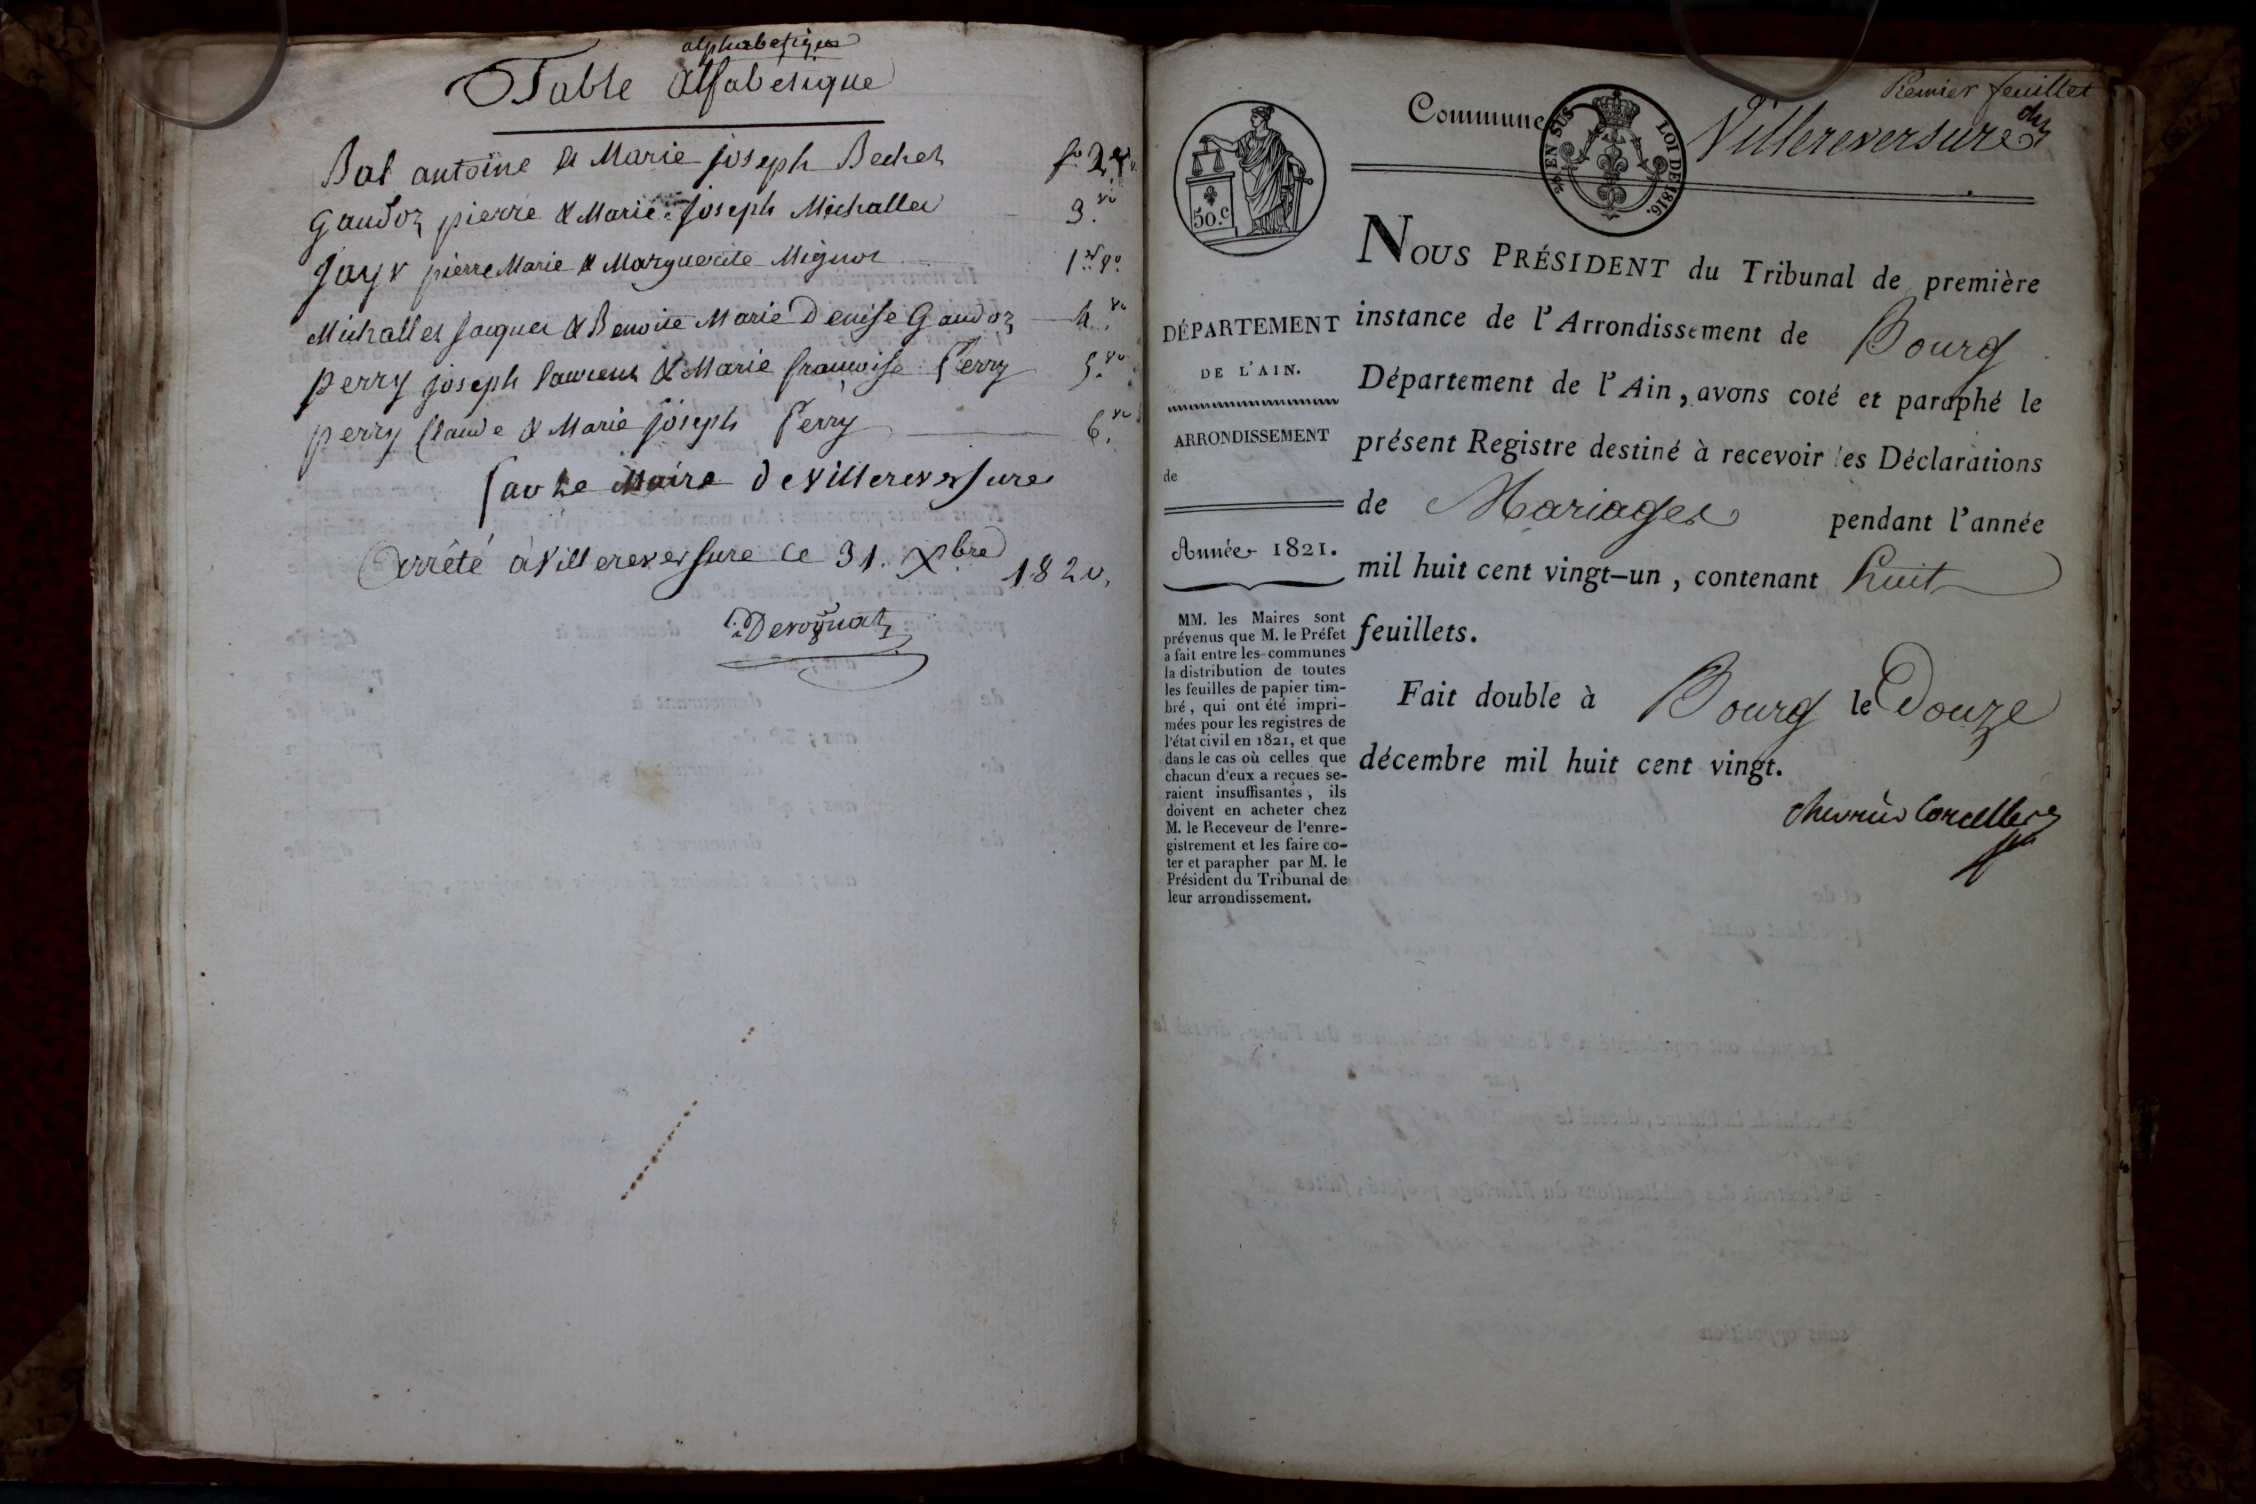 alphabetique
Table Alfabetique
Bal antoine & Marie joseph Bechet fo 2 vo
Gaudoz pierre & Marie joseph Michallet 3. vo
Jayr pierre Marie & Marguerite Mignot 1er vo
Michallet jacques & Benoite Marie Denise Gaudoz 4. vo
perry joseph Laurent & Marie françoise Perry 5. vo
perry Claude & Marie joseph Perry 6. vo
Maire de Villereversure
Arrêté à Villereversure le 31. Xbre 1820,
Premier feuillet
50.c
EN SUS
LOI DE 1816.
Commune Villereversure
DÉPARTEMENT
DE L'AIN.
ARRONDISSEMENT
de
Année 1821.
MM. les Maires sont
prévenus que M. le Préfet
a fait entre les communes
la distribution de toutes
les feuilles de papier tim-
bré, qui ont été impri-
mées pour les registres de
l'état civil en 1821, et que
dans le cas où celles que
chacun d'eux a reçues se-
raient insuffisantes, ils
doivent en acheter chez
M. le Receveur de l'enre-
gistrement et les faire co-
ter et parapher par M. le
Président du Tribunal de
leur arrondissement.
NOUS PRÉSIDENT du Tribunal de première
instance de l'Arrondissement de Bourg
Département de l'Ain, avons coté et paraphé le
présent Registre destiné à recevoir les Déclarations
de Mariages pendant l'année
mil huit cent vingt-un, contenant huit
feuillets.
Fait double à Bourg le Douze
décembre mil huit cent vingt.